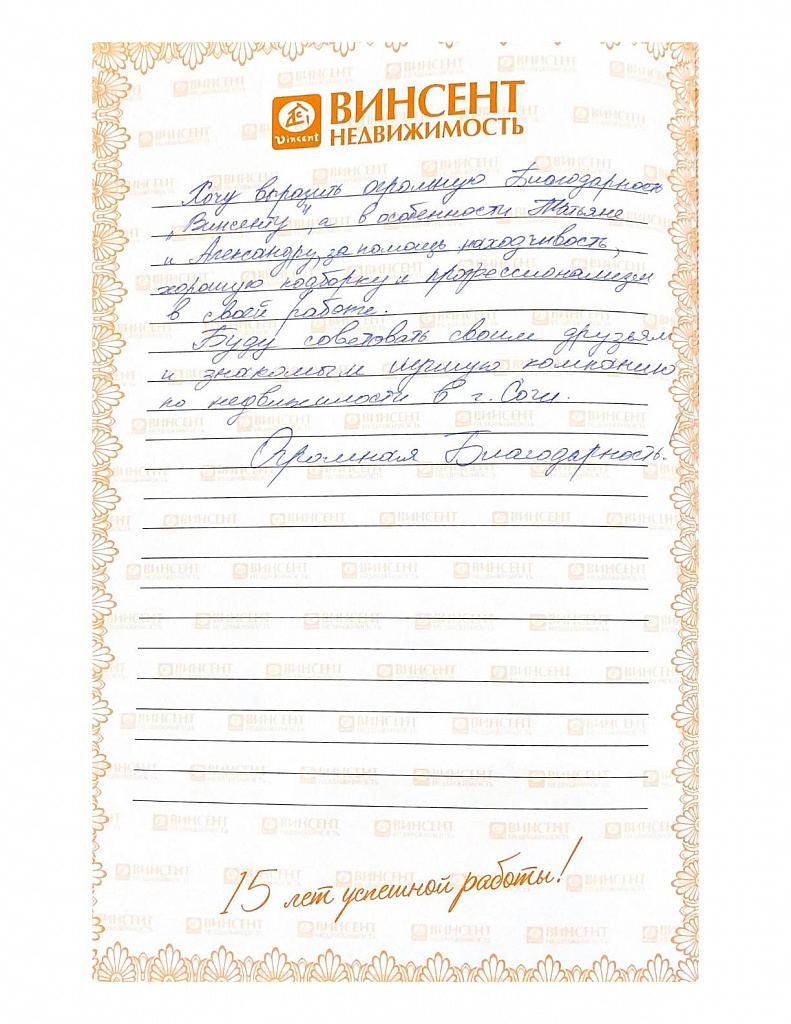 ВИНСЕНТ
НЕДВИЖИМОСТЬ
Vincent
Хочу выразить огромную Благодарность
"Винсенту", а в особенности Татьяне
и Александру, за помощь, находчивость,
хорошую подборку и профессионализм
в своей работе.
Буду советовать своим друзьям
и знакомым лучшую компанию
по недвижимости в г. Сочи.
Огромная Благодарность.
15 лет успешной работы!